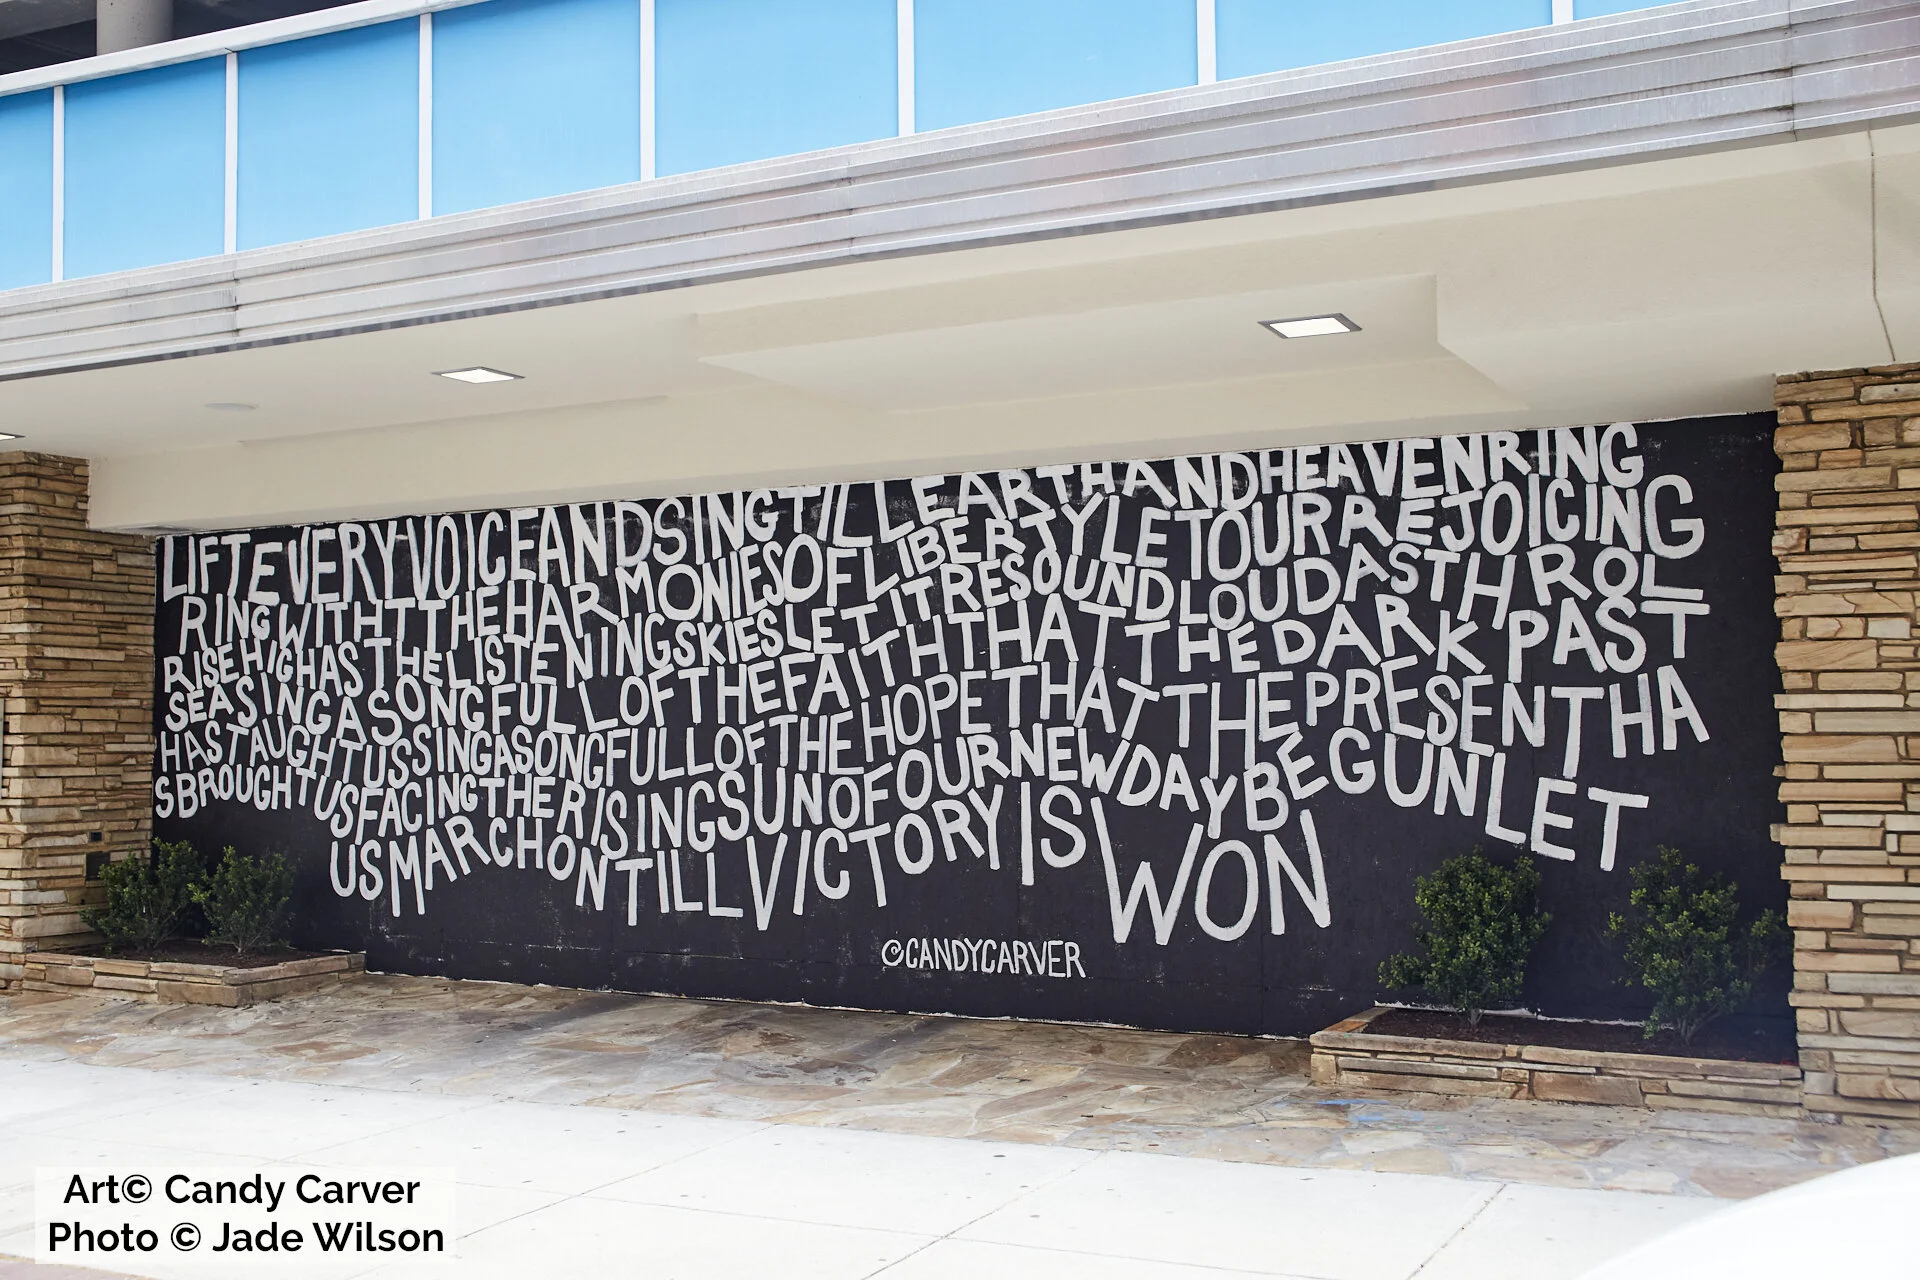 LIFTEVERYVOICEANDSINGTILLEARTHANDHEAVENRING
RINGWITHTTHEHARMONIESOFLIBERTYLETOURREJOICING
RISEHIGHASTHELISTENINGSKIESLETITRESOUNDLOUDASTHROL
SEASINGASONGFULLOFTHEFAITHTHATTHEDARKPAST
HASTAUGHTUSSINGASONGFULLOFTHEHOPETHATTHEPRESENTHA
SBROUGHTUSFACINGTHERISINGSUNOFOURNEWDAYBEGUNLET
USMARCHONTILLVICTORY IS WON
@CANDYCARVER
Art© Candy Carver
Photo © Jade Wilson